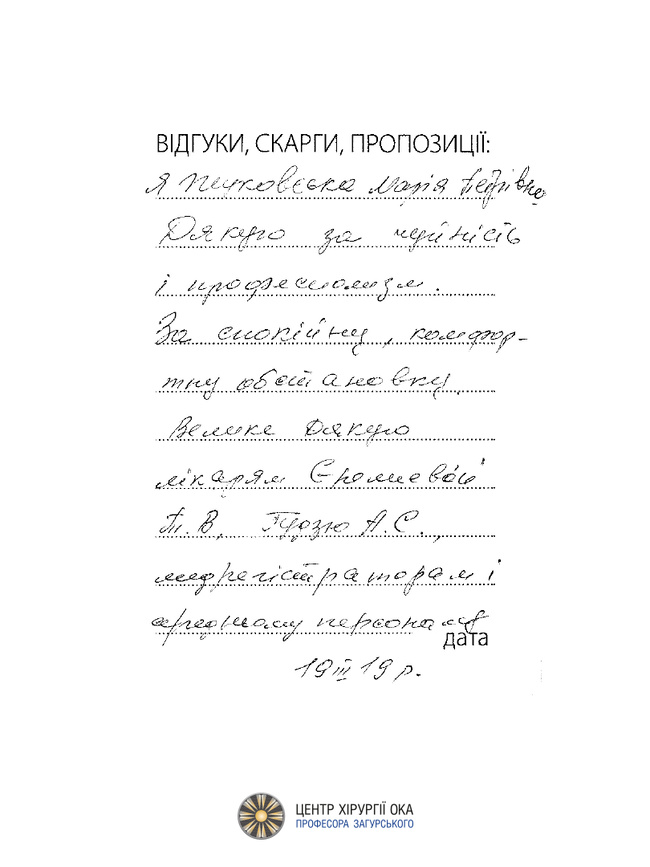 ВІДГУКИ, СКАРГИ, ПРОПОЗИЦІЇ:
Я Марія Петрівна
Дякую за чуйність
і професиолизм.
За спокійну, комфор-
тну обстановку.
Велике Дякую
лікарям
Т. В., А. С.,
медрегістраторам і
середньому персоналу
дата
19 III 19 р.
ЦЕНТР ХІРУРГІЇ ОКА
ПРОФЕСОРА ЗАГУРСЬКОГО